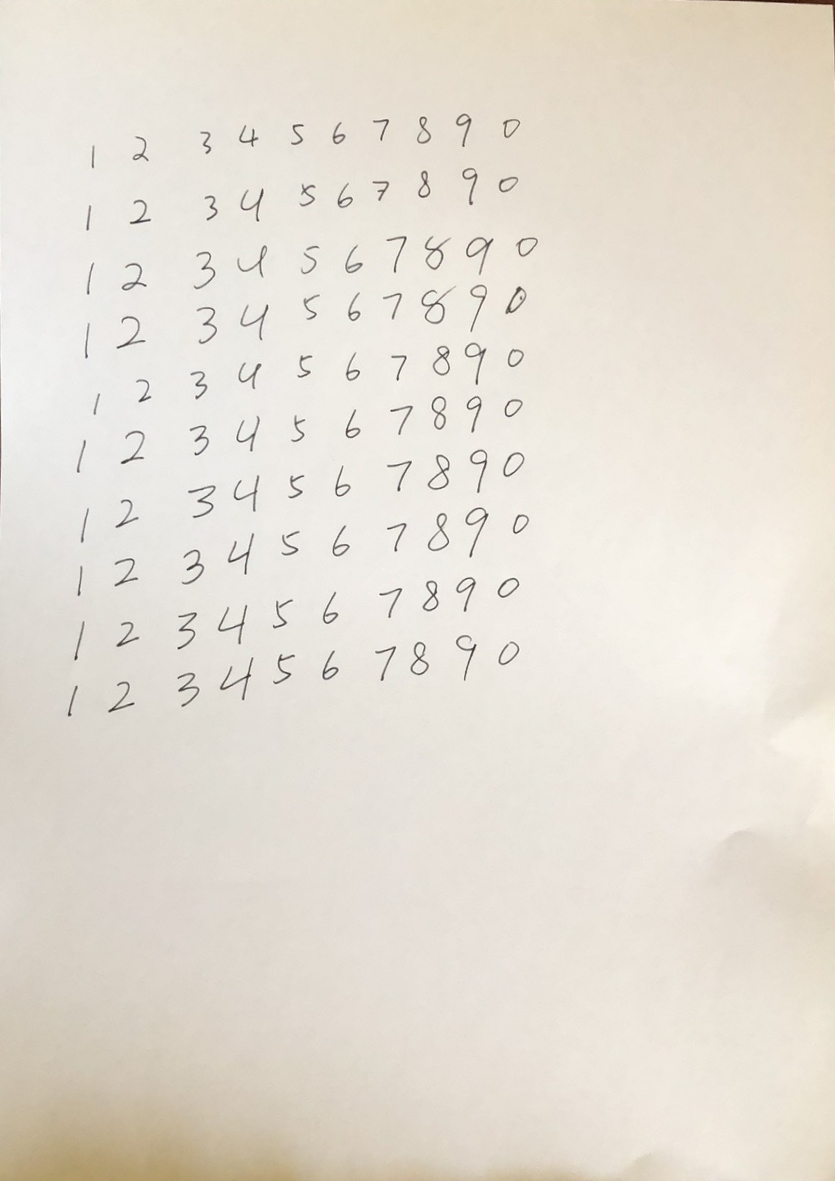 1 2 3 4 5 6 7 8 9 0
1 2 3 4 5 6 7 8 9 0
1 2 3 4 5 6 7 8 9 0
1 2 3 4 5 6 7 8 9 0
1 2 3 4 5 6 7 8 9 0
1 2 3 4 5 6 7 8 9 0
1 2 3 4 5 6 7 8 9 0
1 2 3 4 5 6 7 8 9 0
1 2 3 4 5 6 7 8 9 0
1 2 3 4 5 6 7 8 9 0